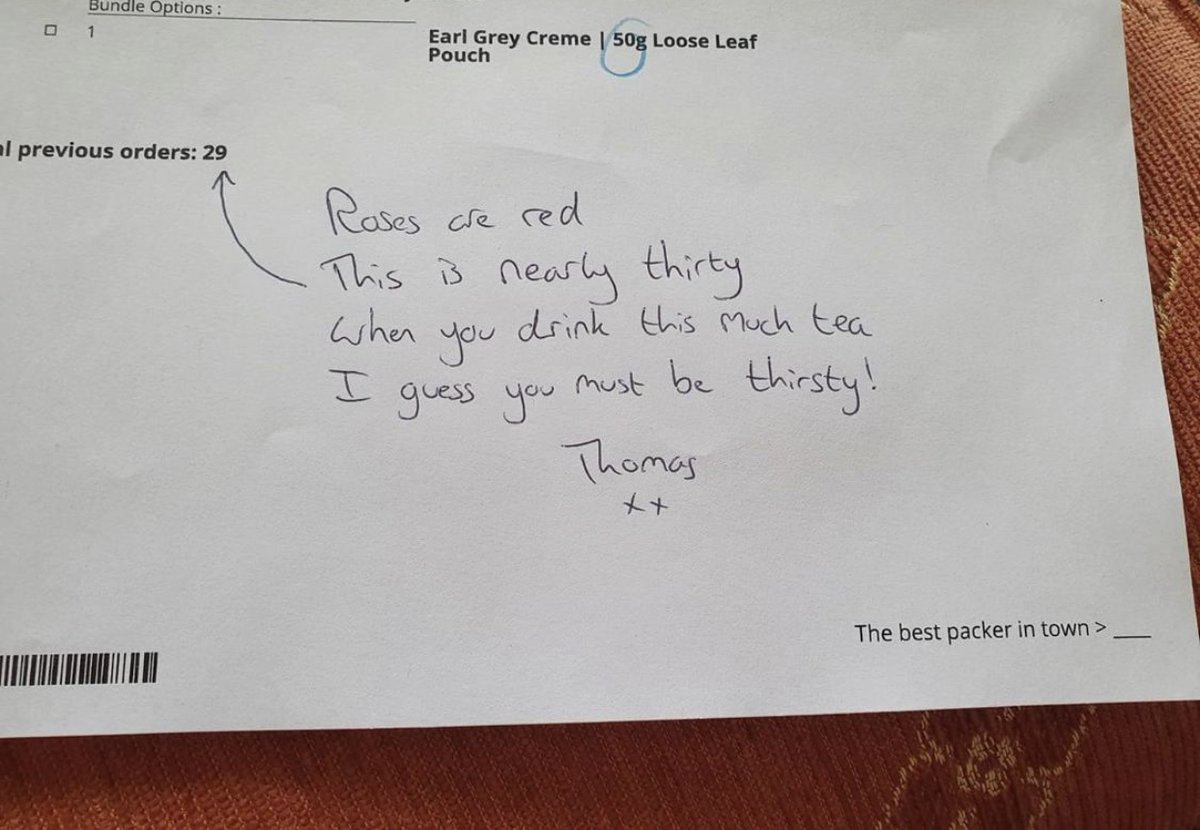 Bundle Options :
1
Earl Grey Creme | 50g Loose Leaf
Pouch
previous orders: 29
Roses are red
This is nearly thirty
When you drink this much tea
I guess you must be thirsty!
Thomas
xx
The best packer in town > ___